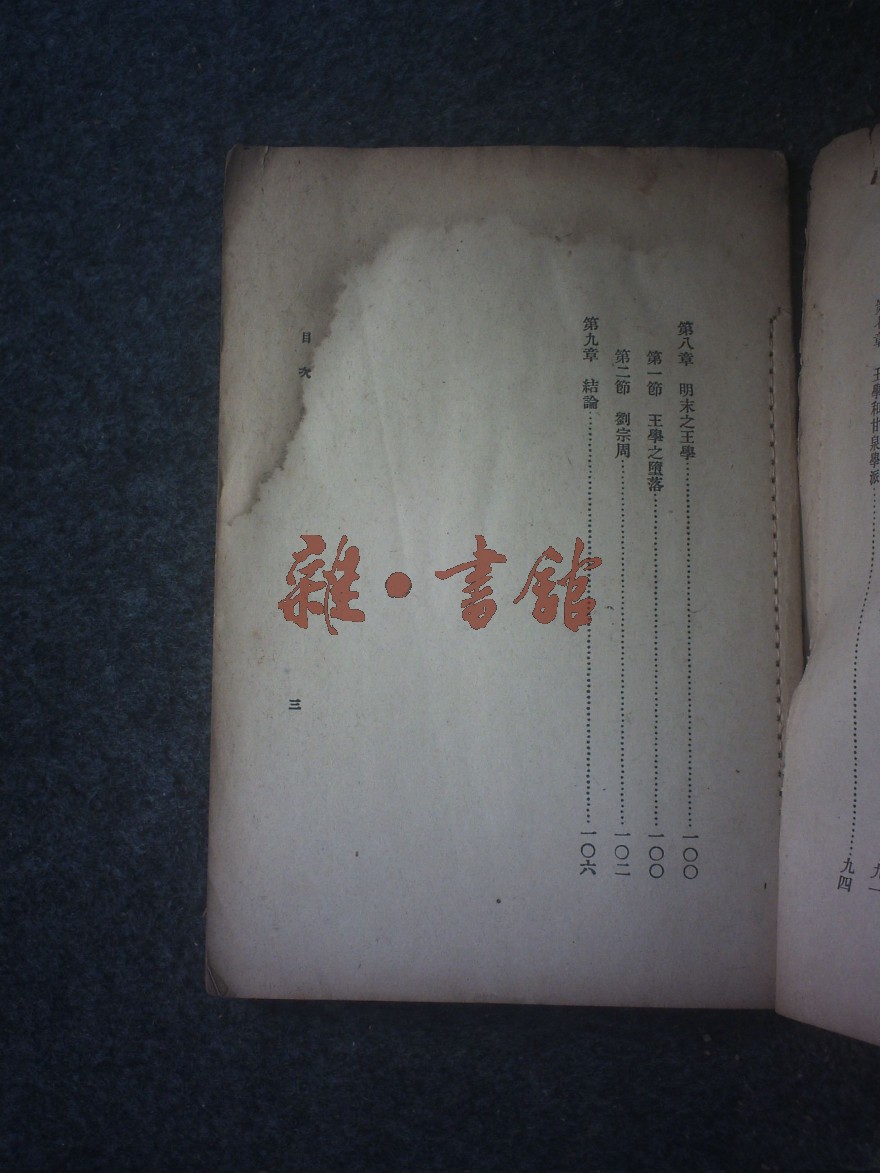 王學和甘與學派……九四
第八章　明末之王學……一〇〇
第一節　王學之墮落……一〇〇
第二節　劉宗周……一〇二
第九章　結論……一〇六
目次
三
雜·書館